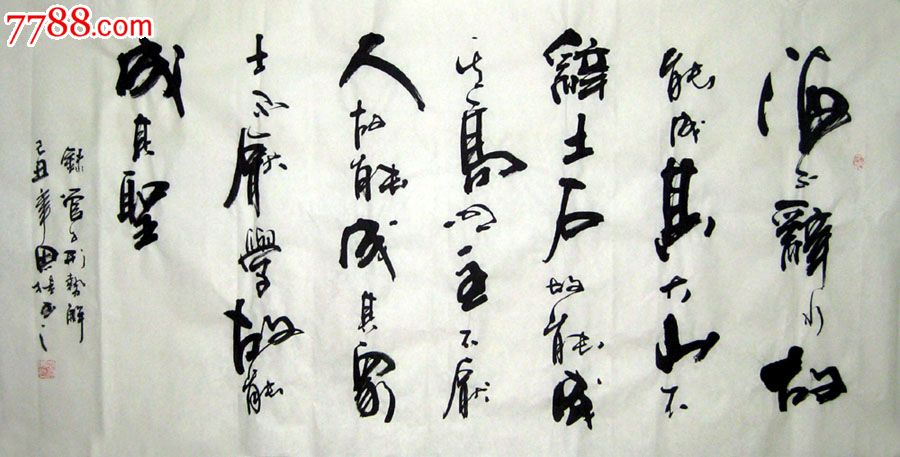 7788.com
海不辭水故
能成其大山不
辭土石故能成
其高明主不厭
人故能成其眾
士不厭學故能
成其聖
錄管子形勢解
己丑年